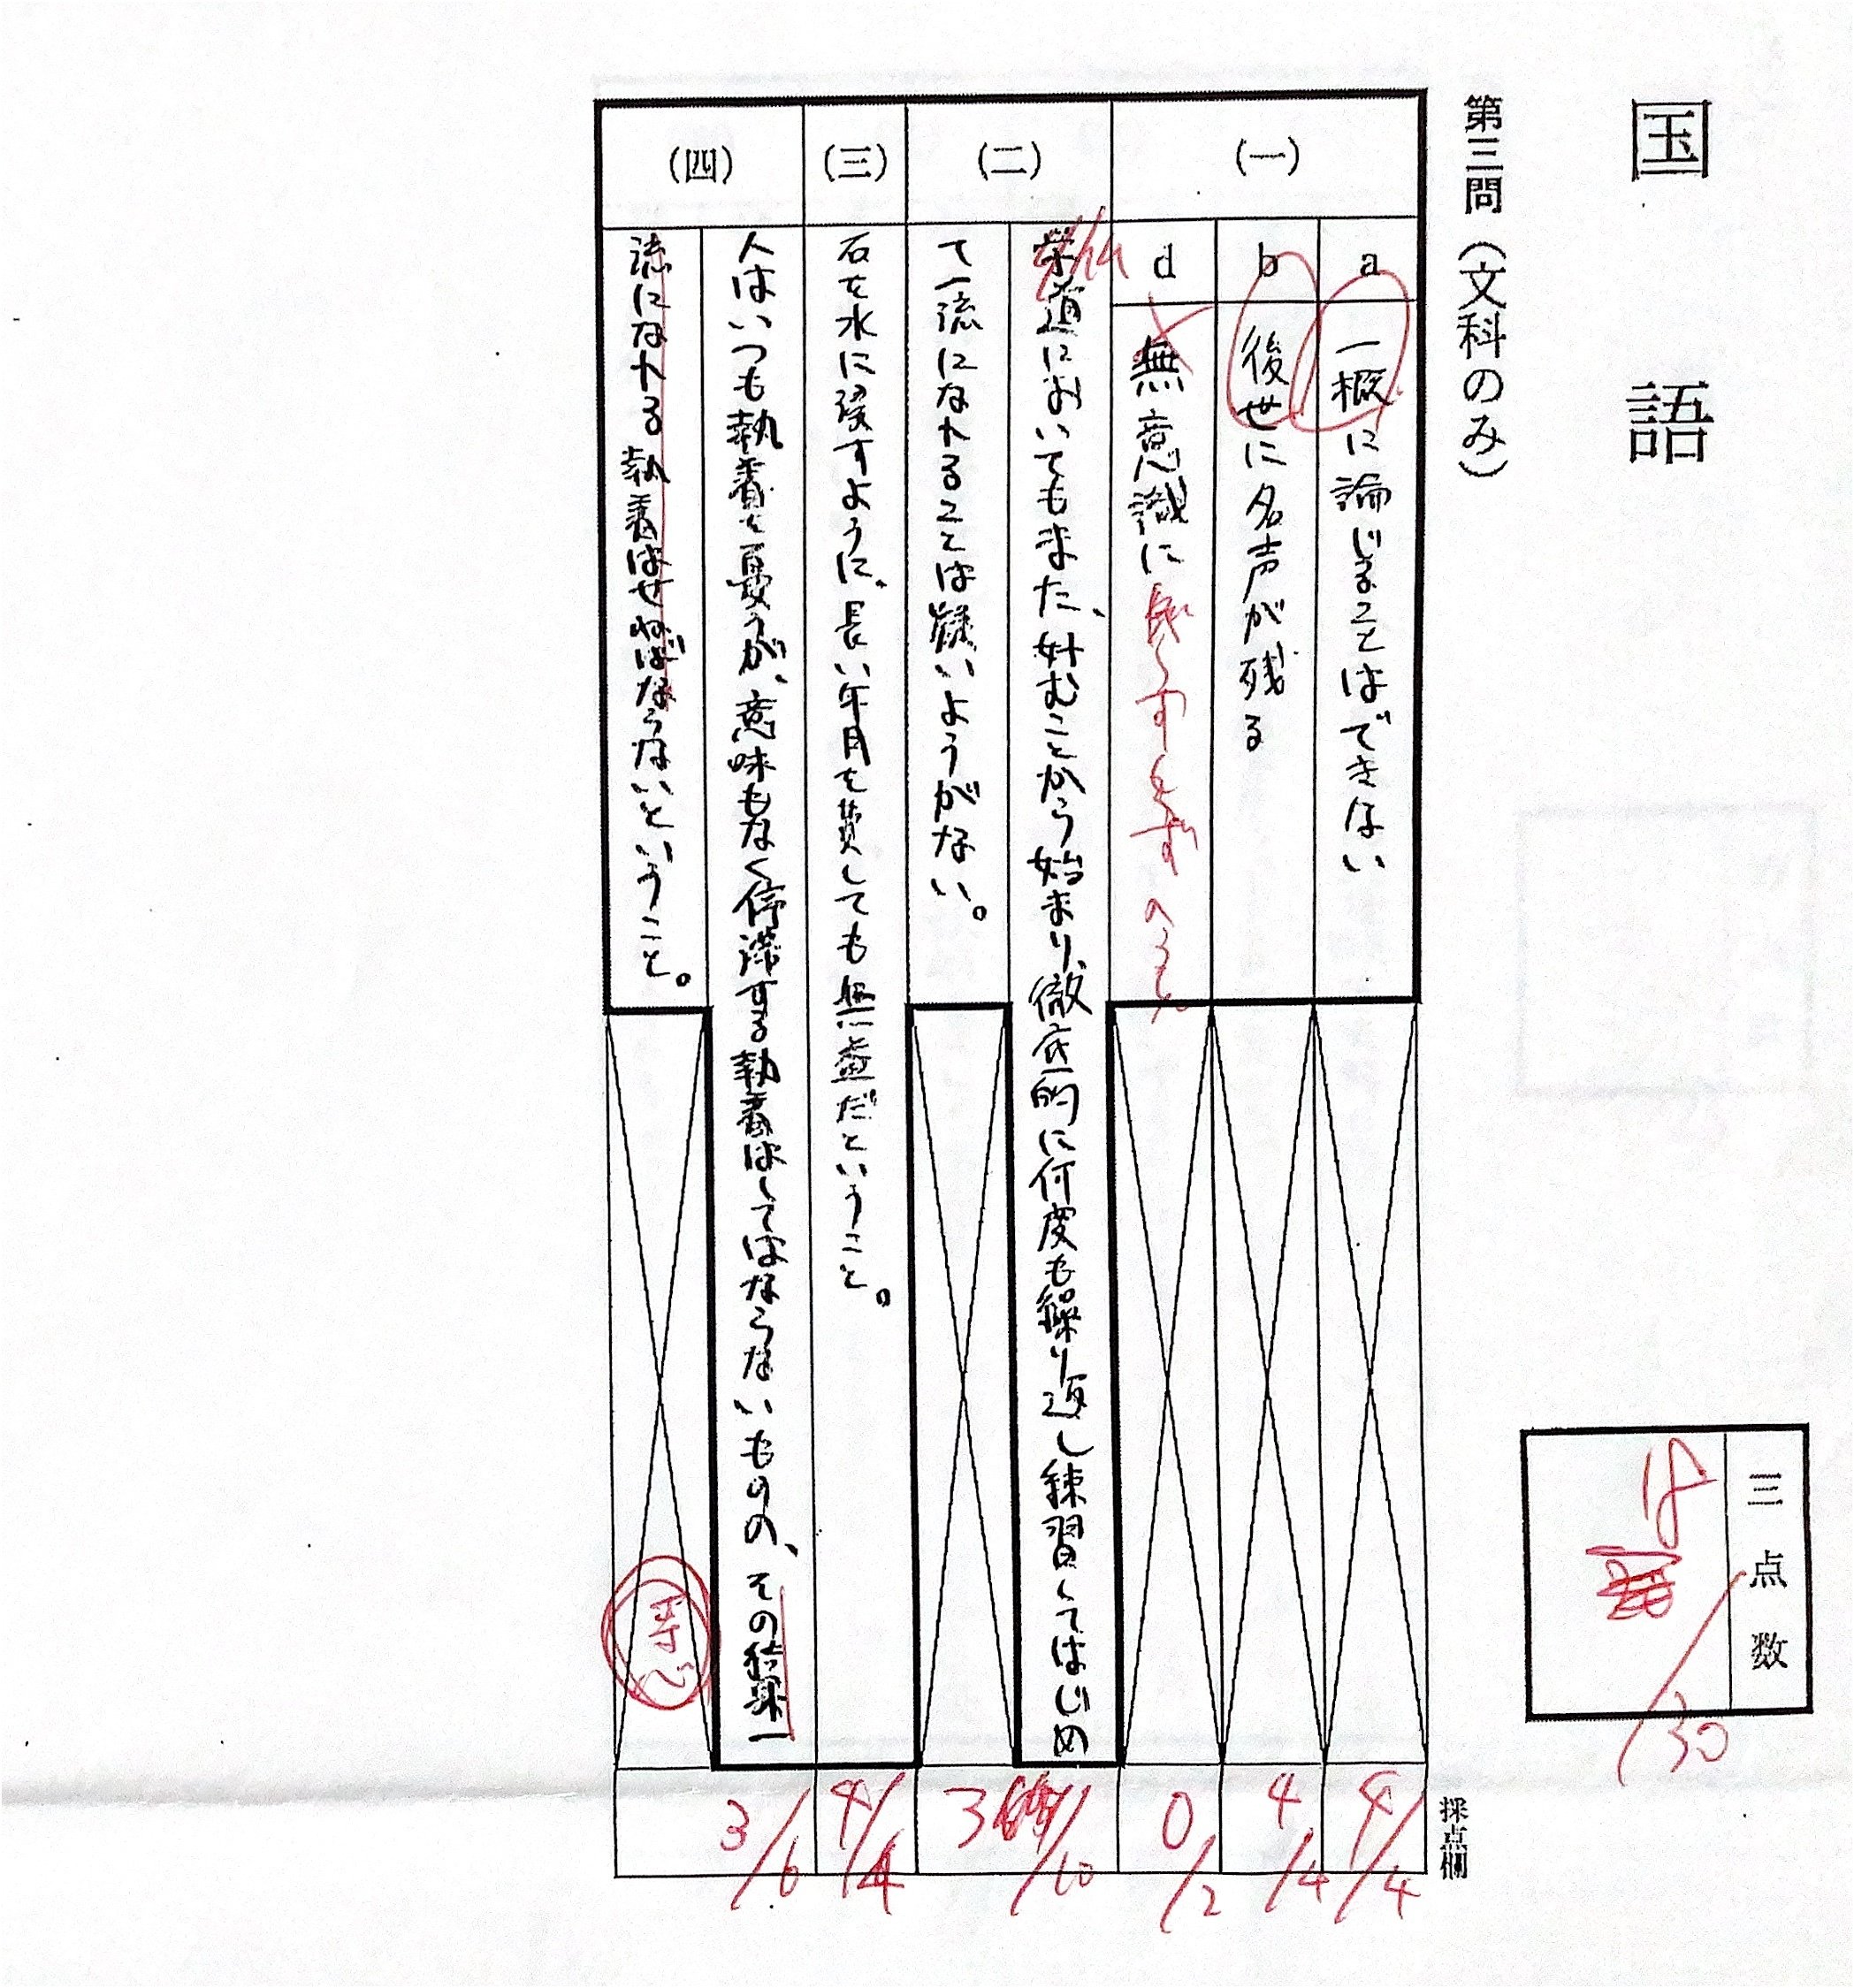 国語
第三問（文科のみ）
(一)
a 一概に論じることはできない
b 後世に名声が残る
d 無意識に
(二)
学道においてもまた、好むことから始まり、徹底的に何度も繰り返し練習してはじめ
て一流になれることは疑いようがない。
(三)
石を水に浸すように、長い年月を費しても無益だということ。
(四)
人はいつも執着を憂うが、意味もなく停滞する執着はしてはならないものの、その結果一
流になれる執着はせねばならないということ。
三点数
/30
採点欄
4/4
4/4
0/2
3 /10
4/4
3/6